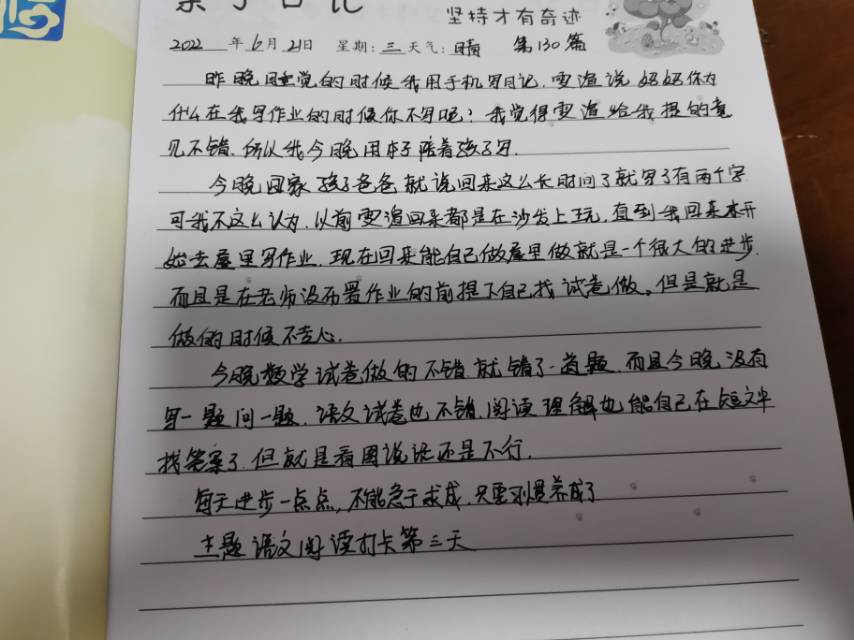 亲子日记
坚持才有奇迹
2022年6月21日 星期:三 天气:晴 第130篇
昨晚睡觉的时候我用手机写日记,雯渲说妈妈你为
什么在我写作业的时候你不写呢?我觉得雯渲给我提的意
见不错,所以我今晚用本子陪着孩子写.
今晚回家孩子爸爸就说回来这么长时间了就写了有两个字
可我不这么认为,以前雯渲回来都是在沙发上玩,直到我回来才开
始去屋里写作业,现在回来能自己做屋里做就是一个很大的进步
而且是在老师没布置作业的前提下自己找试卷做。但是就是
做的时候不专心.
今晚数学试卷做的不错,就错了一道题,而且今晚没有
写一题问一题,语文试卷也不错,阅读理解也能自己在短文中
找答案了,但就是看图说话还是不行.
每天进步一点点,不能急于求成,只要习惯养成了
主题语文阅读打卡第三天